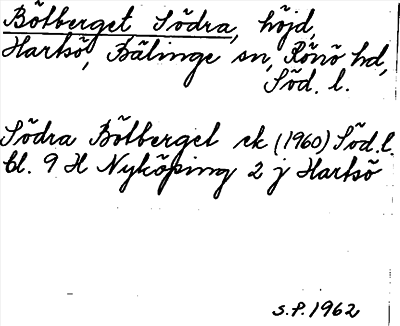 Bötberget, Södra, höjd,
Hartsö, Bälinge sn, Rönö hd,
Söd. l.
Södra Bötberget ek (1960) Söd. l.
bl. 9 H Nyköping 2 j Hartsö
S.P. 1962